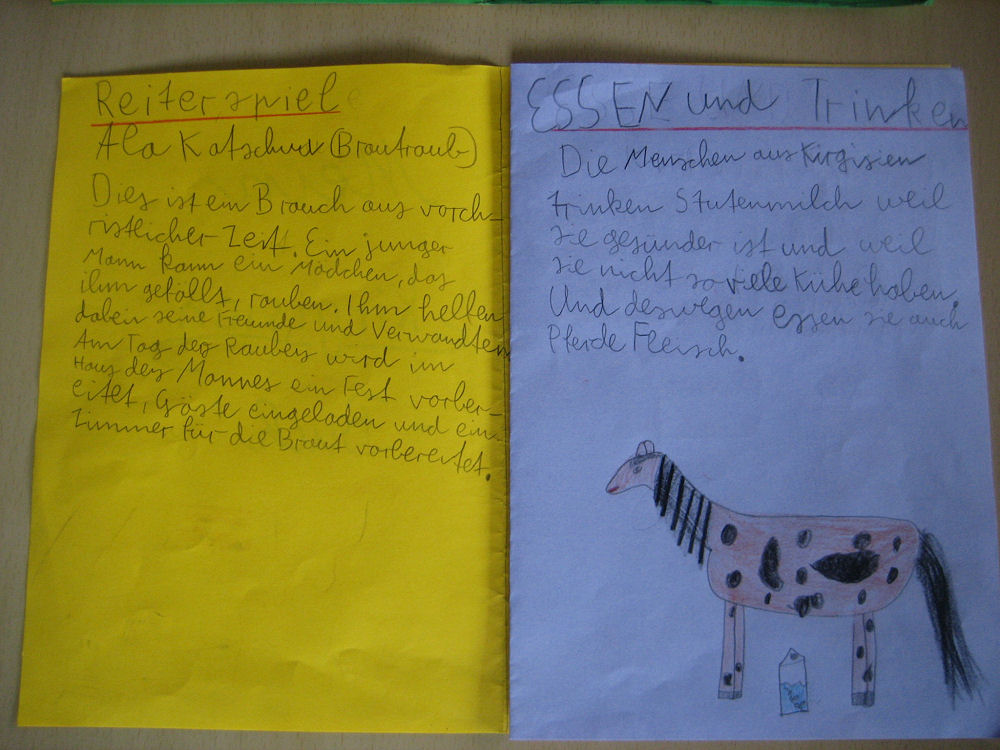 Reiterspiel
Ala Katschuu (Brautraub)
Dies ist ein Brauch aus vorch-
ristlicher Zeit. Ein junger
Mann kann ein Mädchen, das
ihm gefällt, rauben. Ihm helfen
dabein seine Freunde und Verwandten
Am Tag des Raubes wird im
Haus des Mannes ein Fest vorber-
eitet, Gäste eingeladen und ein
Zimmer für die Braut vorbereitet.
ESSEN und Trinken
Die Menschen aus Kirgisien
trinken Stutenmilch weil
sie gesünder ist und weil
sie nicht so viele Kühe haben.
Und deswegen essen sie auch
Pferde Fleisch.